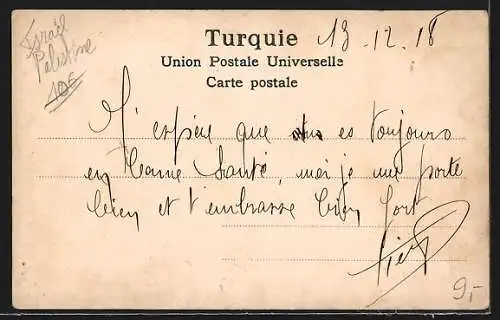 Israël
Palestine
10€
Turquie 13.12.18
Union Postale Universelle
Carte postale
que es toujours
en bonne Santé, moi je me porte
bien et t'embrasse bien fort
9,-